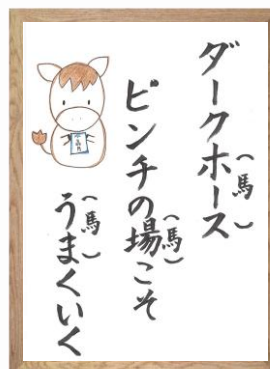 ダークホース
（馬）
ピンチの場こそ
（馬）
うまくいく
（馬）